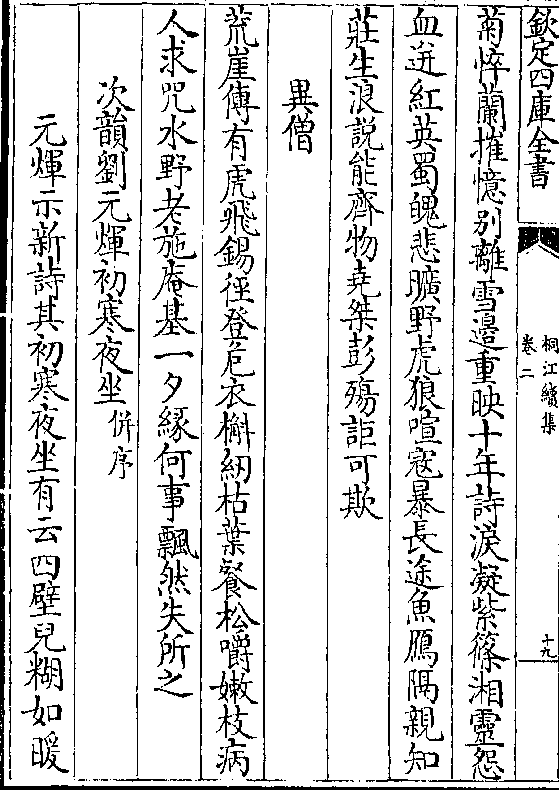 欽定四庫全書
桐江續集
卷二
十九
菊悴蘭摧憶别離雪邉重映十年詩淚凝紫篠湘靈怨
血迸紅英蜀魄悲曠野虎狼喧寇暴長途魚鴈隔親知
莊生浪説能齊物堯桀彭殤詎可欺
異僧
荒崖傳有虎飛錫徑登危衣槲紉枯葉餐松嚼嫩枝病
人求咒水野老施庵基一夕緣何事飄然失所之
次韻劉元煇初寒夜坐 併序
元煇示新詩其初寒夜坐有云四壁兒糊如暖